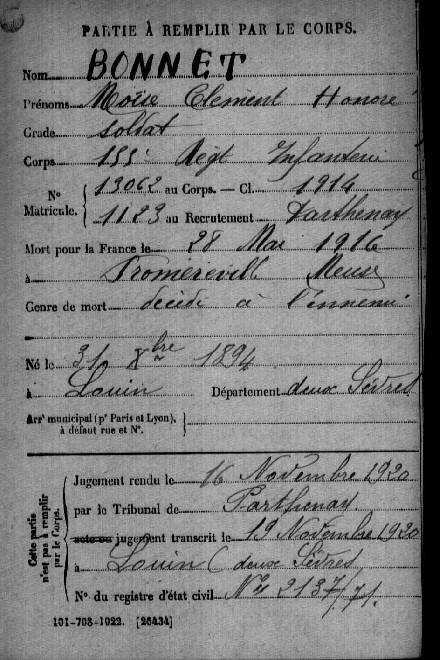 PARTIE À REMPLIR PAR LE CORPS.
Nom BONNET
Prénoms Moïse Clement Honoré
Grade soldat
Corps 155e Régt Infanterie
Nº Matricule. { 13062 au Corps. — Cl. 1914
1123 au Recrutement Parthenay
Mort pour la France le 28 Mai 1916
à Fromereville Meuse
Genre de mort décédé à l'ennemi
Né le 31 Xbre 1894
à Louin Département deux Sèvres
Arrt municipal (pr Paris et Lyon),
à défaut rue et Nº.
Cette partie n'est pas à remplir par le Corps.
Jugement rendu le 16 Novembre 1920
par le Tribunal de Parthenay
acte ou jugement transcrit le 19 Novembre 1920
à Louin (deux Sèvres
Nº du registre d'état civil Nº 2137/71.
101-708-1922. [26434]